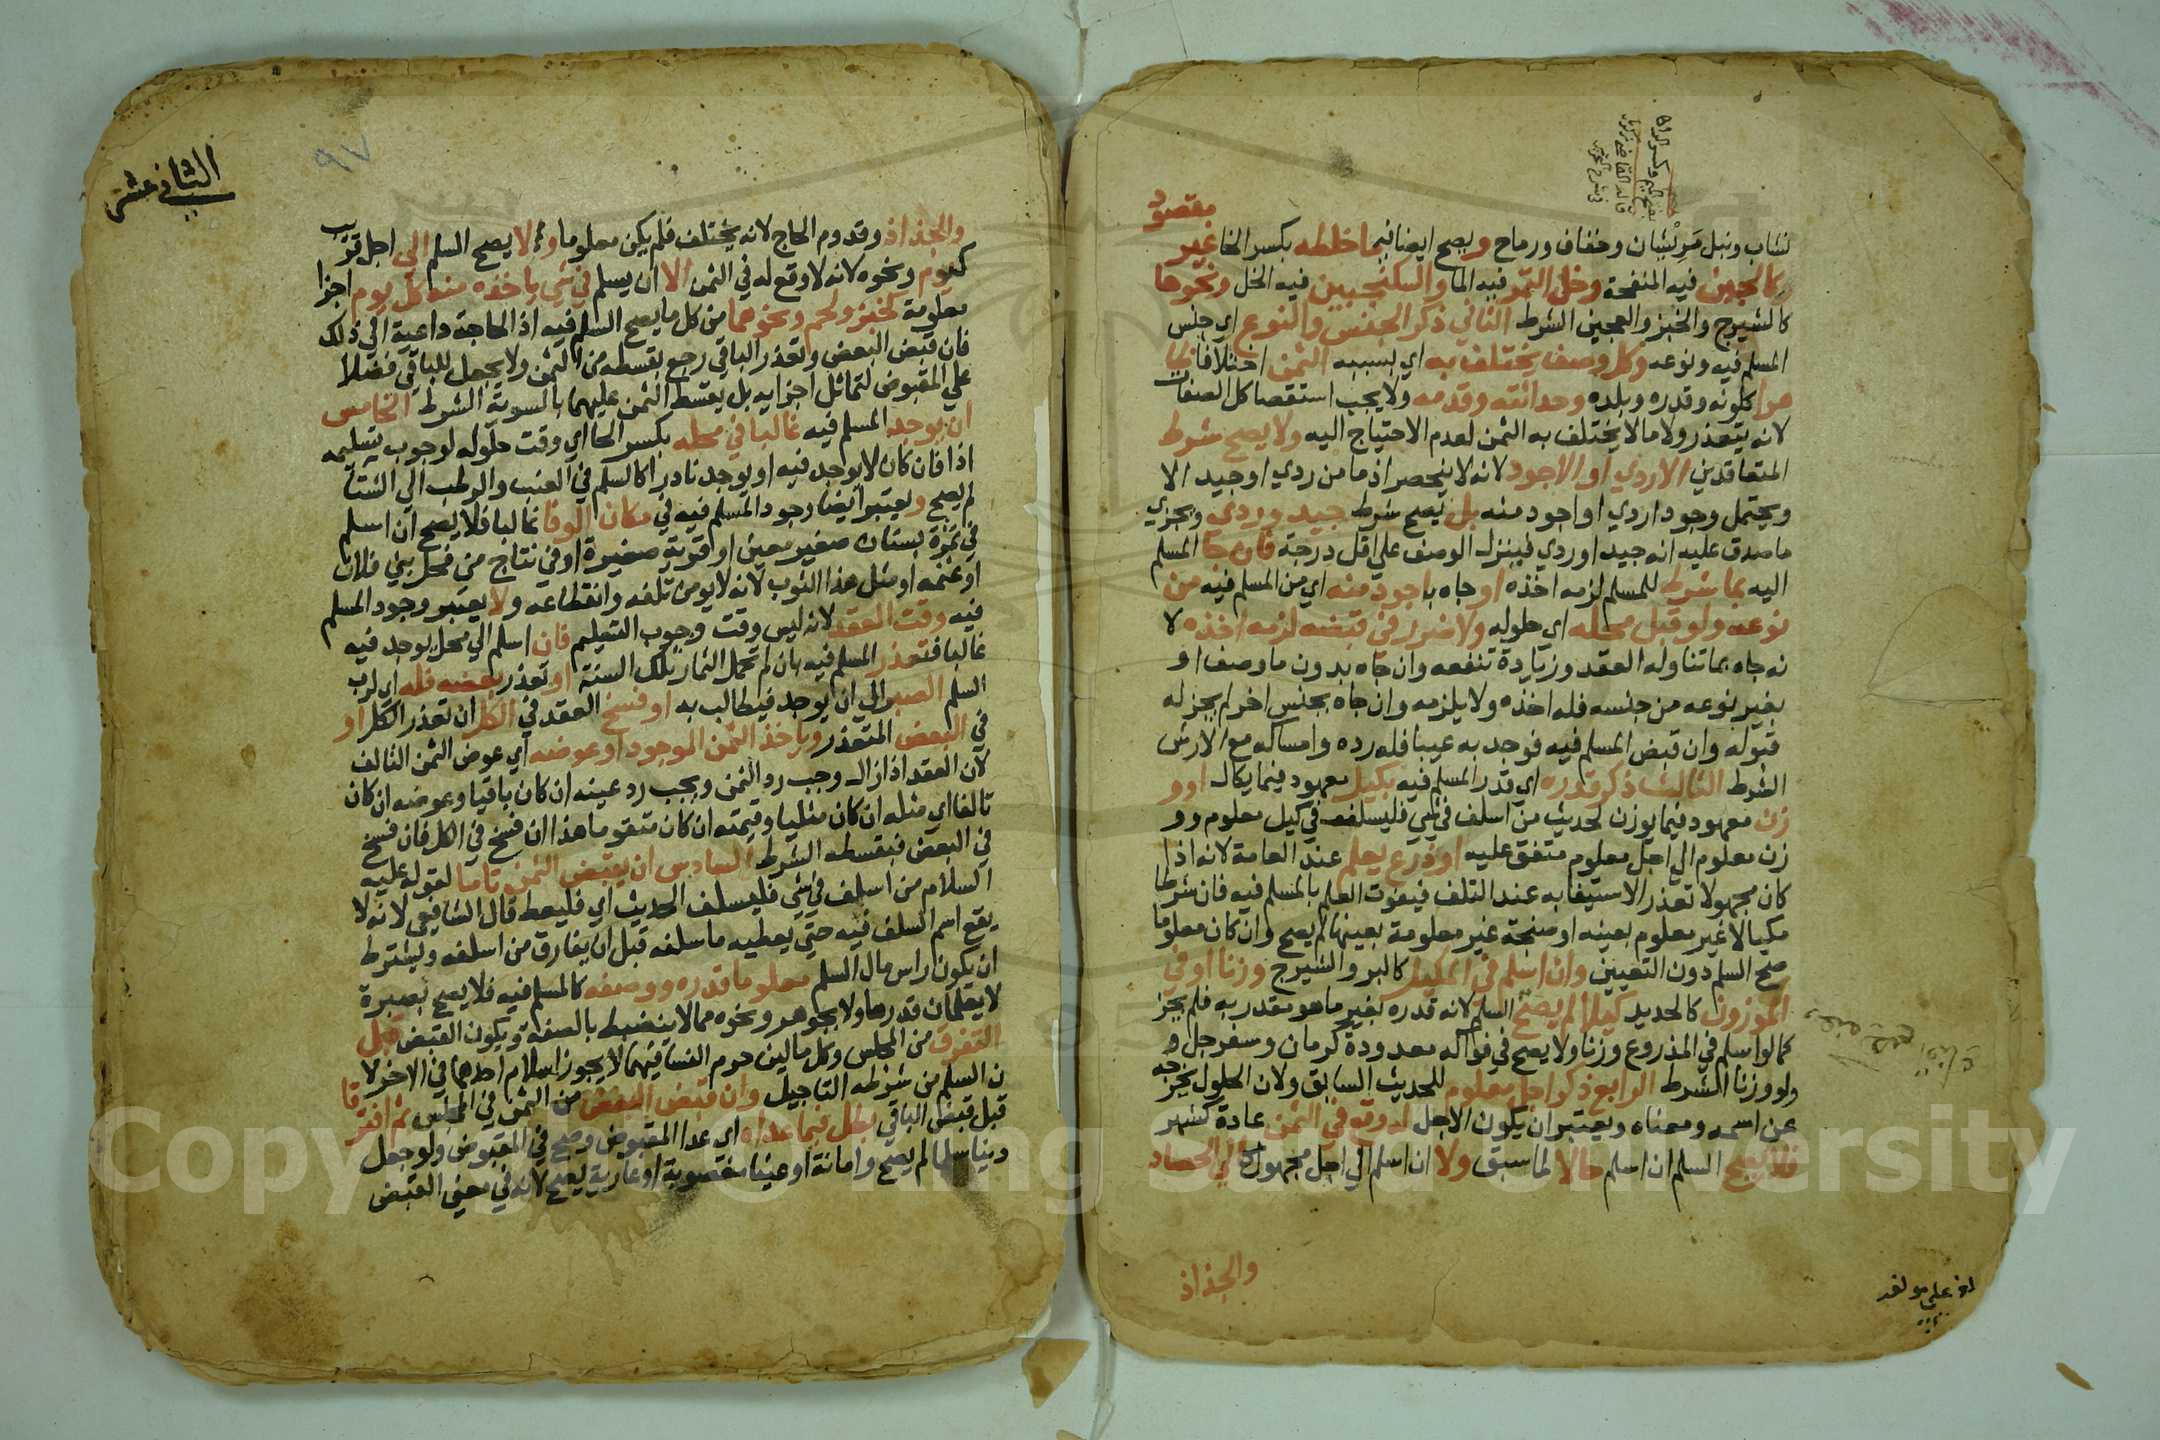 مقصود
نشاب ونبل مريشان وخفاف ورماح ويصح ايضا فيما خلطه بكسر الخا غير
كالجبن فيه المنفحة وخل التمر فيه الما والسكنجبين فيه الخل ونحوها
كالشيرج والخبز والعجين الشرط الثاني ذكر الجنس والنوع اي جنس
المسلم فيه ونوعه وكل وصف يختلف به اي بسببه الثمن اختلافا ظا
هرا كلونه وقدره وبلده وحداثته وقدمه ولا يجب استقصا كل الصفات
لانه يتعذر ولا ما لا يختلف به الثمن لعدم الاحتياج اليه ولا يصح شرط
المتعاقدين الاردي او الاجود لانه لا ينحصر اذ ما من ردي او جيد الا
ويحتمل وجود اردي او اجود منه بل يصح شرط جيد وردي ويجزي
ما صدق عليه انه جيد او ردي فينزل الوصف على اقل درجة فان جا المسلم
اليه بما شرط للمسلم لزمه اخذه او جاه باجود منه اي من المسلم فيه من
نوعه ولو قبل محله اي حلوله ولا ضرر في قبضه لزمه اخذه لا
نه جاه بما تناوله العقد وزيادة تنفعه وان جاه بدون ما وصف او
بغير نوعه من جنسه فله اخذه ولا يلزمه وان جاه بجنس اخر لم يجز له
قبوله وان قبض المسلم فيه فوجد به عيبا فله رده وامساكه مع الارش
الشرط الثالث ذكر قدره اي قدر المسلم فيه بكيل معهود فيما يكال او و
زن معهود فيما يوزن لحديث من اسلف في شي فليسلف في كيل معلوم وو
زن معلوم الي اجل معلوم متفق عليه او ذرع يعلم عند العامة لانه اذا
كان مجهولا تعذر الاستيفا به عند التلف فيفوت العلم بالمسلم فيه فان شرطا
مكيالا غير معلوم بعينه او صنجة غير معلومة بعينها لم يصح وان كان معلوما
صح السلم دون التعيين وان اسلم في المكيل كالبر والشيرج وزنا او في
الموزون كالحديد كيلا لم يصح السلم لانه قدره بغير ما هو مقدر به فلم يجز
كما لو اسلم في المذروع وزنا ولا يصح في فواكه معدودة كرمان وسفرجل و
ولو وزنا الشرط الرابع ذكر اجل معلوم للحديث السابق ولان الحلول يخرجه
عن اسمه ومعناه ويعتبر ان يكون الاجل له وقع في الثمن عادة كشهر
فلا يصح السلم ان اسلم حالا لما سبق ولا ان اسلم الي اجل مجهول كالي الحصاد
والجذاذ
الثاني عشر
٩٧
والجذاذ وقدوم الحاج لانه يختلف فلم يكن معلوما ولا يصح السلم الي اجل قريب
كيوم ونحوه لانه لا وقع له في الثمن الا ان يسلم في شي ياخذه منه كل يوم اجزا
معلومة كخبز ولحم ونحوهما من كل ما يصح السلم فيه اذ الحاجة داعية الي ذلك
فان قبض البعض وتعذر الباقي رجع بقسطه من الثمن ولا يجعل للباقي فضلا
علي المقبوض لتماثل اجزايه بل يقسط الثمن عليهما بالسوية الشرط الخامس
ان يوجد المسلم فيه غالبا في محله بكسر الحا اي وقت حلوله لوجوب تسليمه
اذا فان كان لا يوجد فيه او يوجد نادرا كالسلم في العنب والرطب الي الشتا
لم يصح ويعتبر ايضا وجود المسلم فيه في مكان الوفا غالبا فلا يصح ان اسلم
في ثمرة بستان صغير معين او قرية صغيرة او في نتاج من فحل بني فلان
او غنمه او مثل هذا الثوب لانه لا يومن تلفه وانقطاعه ولا يعتبر وجود المسلم
فيه وقت العقد لانه ليس وقت وجوب التسليم فان اسلم الي محل يوجد فيه
غالبا فتعذر المسلم فيه بان لم تحمل الثمار تلك السنة او تعذر بعضه فله اي لرب
السلم الصبر الي ان يوجد فيطالب به او فسخ العقد في الكل ان تعذر الكل او
في البعض المتعذر وياخذ الثمن الموجود او عوضه اي عوض الثمن التالف
لان العقد اذا زال وجب رد الثمن ويجب رد عينه ان كان باقيا وعوضه ان كان
تالفا اي مثله ان كان مثليا وقيمته ان كان متقوما هذا ان فسخ في الكل فان فسخ
في البعض فبقسطه الشرط السادس ان يقبض الثمن تاما لقوله عليه
السلام من اسلف في شي فليسلف الحديث اي فليعط قال الشافعي لانه لا
يقع اسم السلف فيه حتي يعطيه ما سلفه قبل ان يفارق من اسلفه ويشترط
ان يكون راس مال السلم معلوما قدره ووصفه كالمسلم فيه فلا يصح بصبرة
لا يعلمان قدرها ولا بجوهر ونحوه مما لا ينضبط بالصفة ويكون القبض قبل
التفرق من المجلس وكل مالين حرم النسا فيهما لا يجوز اسلام احدهما في الاخر لا
ن السلم من شرطه التاجيل وان قبض البعض من الثمن في المجلس ثم افترقا
قبل قبض الباقي بطل فيما عداه اي عدا المقبوض وصح في المقبوض ولو جعل
دينا سلما لم يصح وامانة او عينا مغصوبة او عارية يصح لانه في معني القبض